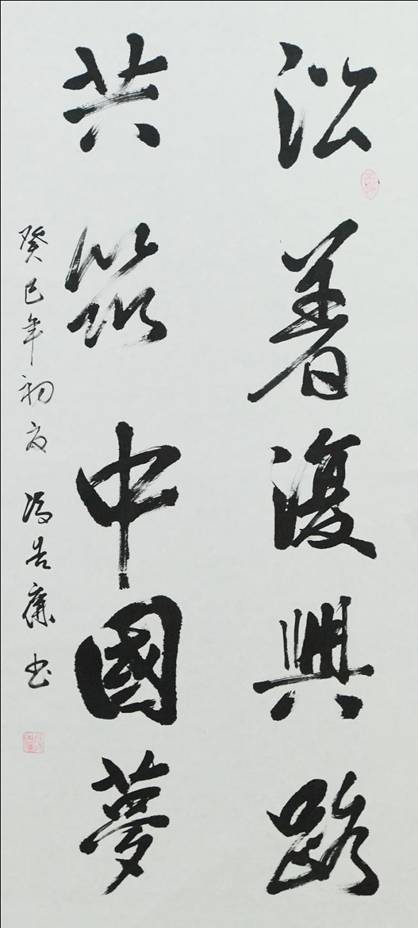 沿着復興路
共筑中國夢
癸巳年初夏 馮吉庸书